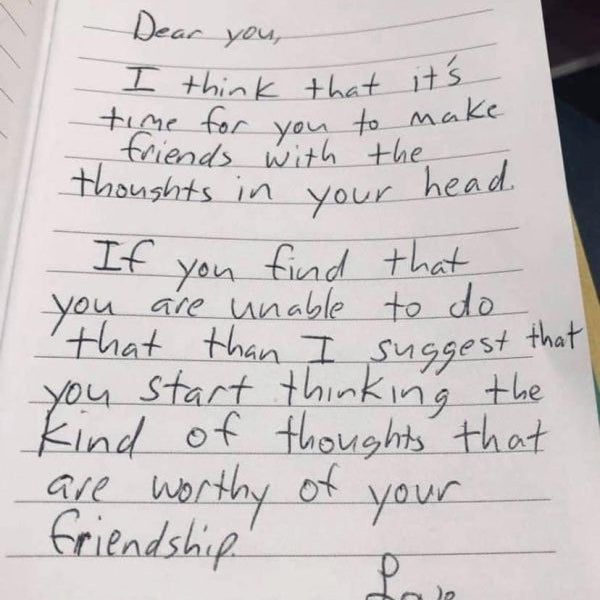 Dear you,
I think that it's
time for you to make
friends with the
thoughts in your head.
If you find that
you are unable to do
that than I suggest that
you start thinking the
kind of thoughts that
are worthy of your
friendship.
Love